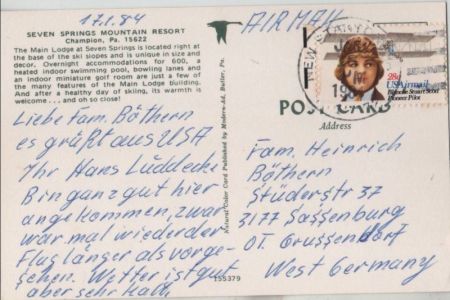 17.1.84
AIRMAIL
SEVEN SPRINGS MOUNTAIN RESORT
Champion, Pa. 15622
The Main Lodge at Seven Springs is located right at
the base of the ski slopes and is unique in size and
decor. Overnight accommodations for 600, a
heated indoor swimming pool, bowling lanes and
an indoor miniature golf room are just a few of
the many features of the Main Lodge building.
And after a healthy day of skiing, its warmth is
welcome . . . and oh so close!
Liebe Fam. Böthern
es grüßt aus USA
Ihr Hans Lüddecke
Bin ganz gut hier
angekommen, zwar
war mal wieder der
Flug länger als vorge-
sehen. Wetter ist gut
aber sehr kalt
Natural Color Card Published by Modern-Ad, Butler, Pa.
155379
NEW STANTON
PM
28c
USAirmail
Blanche Stuart Scott
Pioneer Pilot
POST CARD
Address
Fam. Heinrich
Böthern
Stüderstr 37
3177 Sassenburg
OT. Grussendorf
West Germany